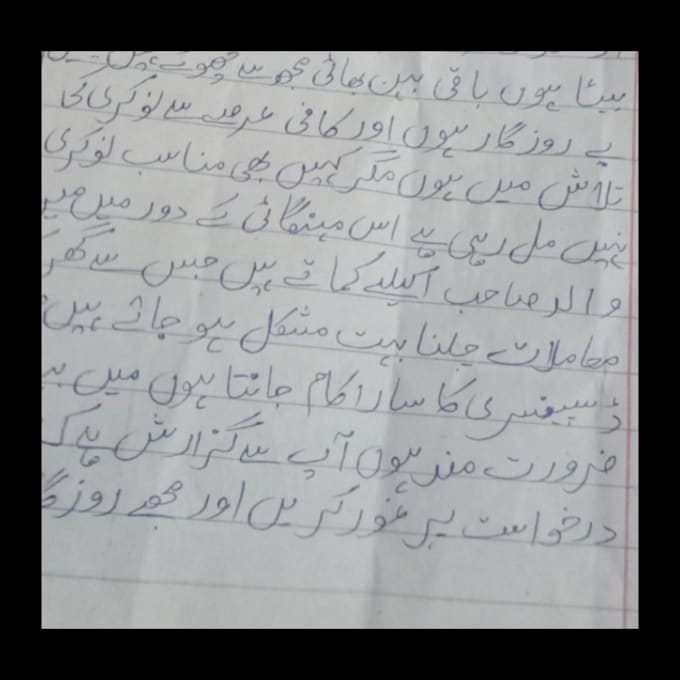 بیٹا ہوں باقی بہن بھائی مجھ سے چھوٹے ہیں
بے روزگار ہوں اور کافی عرصے سے نوکری کی
تلاش میں ہوں مگر کہیں بھی مناسب نوکری
نہیں مل رہی ہے اس مہنگائی کے دور میں
والد صاحب اکیلے کماتے ہیں جس سے گھر
معاملات چلنا بہت مشکل ہو جاتے ہیں
ڈسپینسری کا سارا کام جانتا ہوں میں
ضرورت مند ہوں آپ سے گزارش ہے
درخواست پر غور کریں اور مجھے